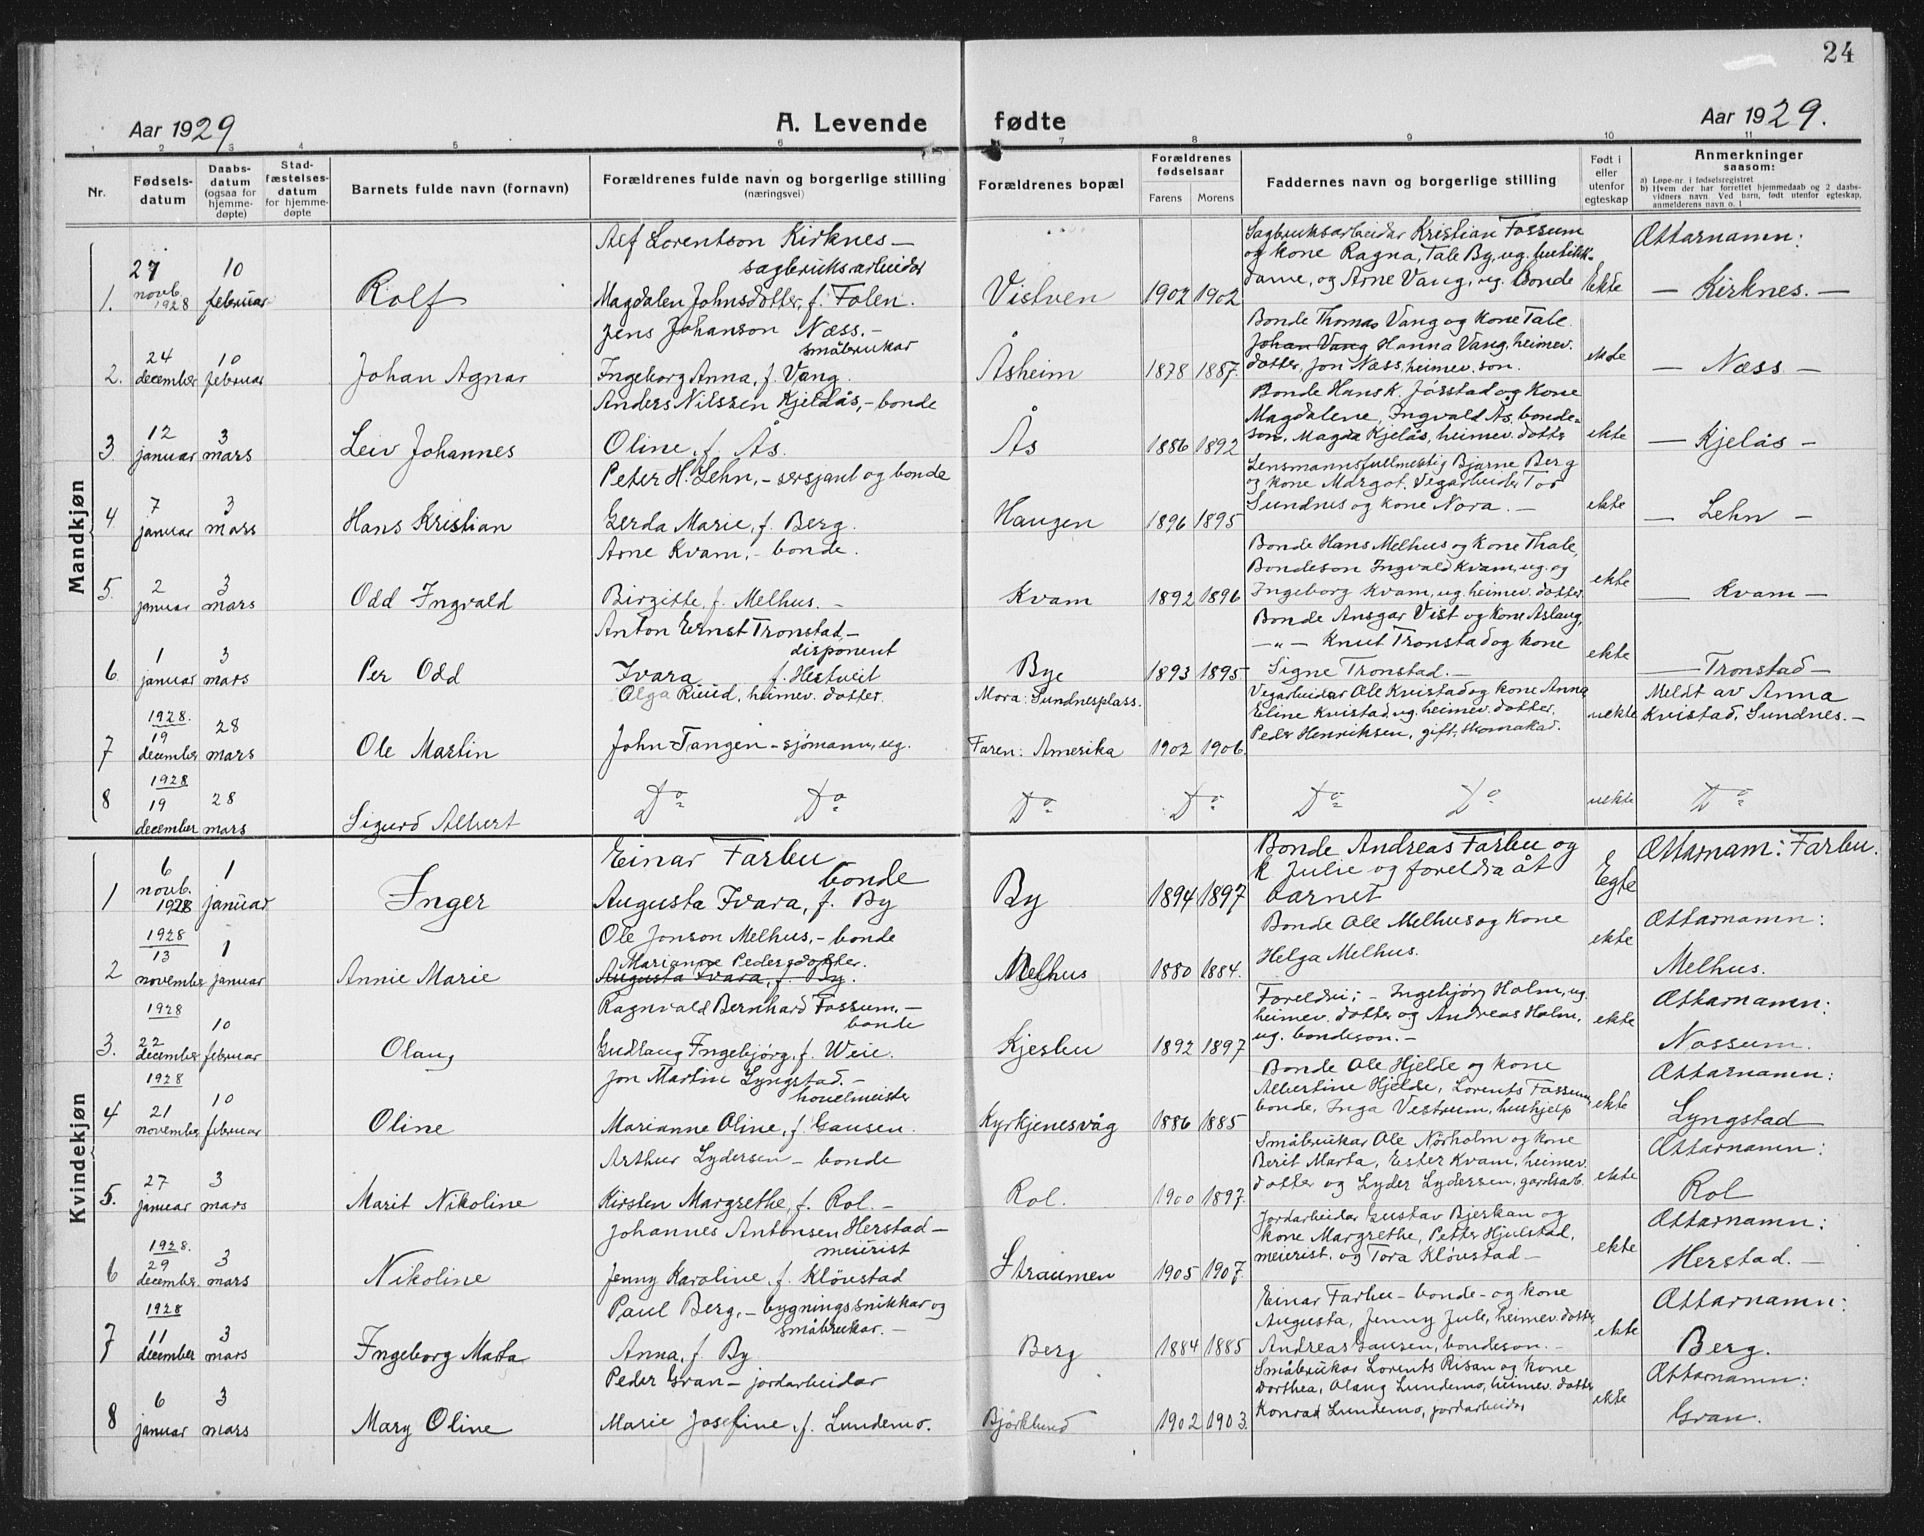 24
Aar 1929
A. Levende fødte
Aar 1929.
1 2 3 4 5 6 7 8 9 10 11
Nr.
Fødsels-
datum
Daabs-
datum
(ogsaa for
hjemme-
døpte)
Stad-
fæstelses-
datum
for hjemme-
døpte
Barnets fulde navn (fornavn)
Forældrenes fulde navn og borgerlige stilling
(næringsvei)
Forældrenes bopæl
Forældrenes
fødselsaar
Farens Morens
Faddernes navn og borgerlige stilling
Født i
eller
utenfor
egteskap
Anmerkninger
saasom:
a) Løpe-nr. i fødselsregistret
b) Hvem der har forrettet hjemmedaab og 2 daabs-
vidners navn. Ved barn, født utenfor egteskap,
anmelderens navn o. l
Mandkjøn
1.
27
novb.
1928
10
februar
Rolf
Alf Lorentson Kirknes –
sagbruksarbeidar
Magdalen Johnsdotter, f. Folen.
Vistven
1902 1902
Sagbruksarbeidar Kristian Fossum
og kone Ragna, Tale By, ug. butikk-
dame, og Arne Vang, ug. bonde
Ekte
Ættarnamn:
– Kirknes. –
2.
24
december
10
februar
Johan Agnar
Jens Johanson Næss. –
småbrukar
Ingeborg Anna, f. Vang
Åsheim
1878 1887.
Bonde Thomas Vang og kone Tale
Johan Vang Hanna Vang, heimev.
dotter, Jon Næss, heimev. son.
ekte
– Næss –
3
12
januar
3
mars
Leiv Johannes
Anders Nilssen Kjelås, – bonde
Oline, f. Ås.
Ås
1886 1892
Bonde Hans K. Jørstad og kone
Magdalene, Ingvald Ås, bonde-
son, Magda Kjelås, heimev. dotter
ekte
– Kjelås –
4
7
januar
3
mars
Hans Kristian
Peter H. Lehn, – sersjant og bonde
Gerda Marie, f. Berg.
Haugen
1896 1895
Lensmannsfullmektig Bjarne Berg
og kone Margot. Vegarbeider Tor
Sundnes og kone Nora. –
ekte
– Lehn –
5.
2
januar
3
mars
Odd Ingvald
Arne Kvam, – bonde.
Birgitte, f. Melhus. –
Kvam
1892 1896
Bonde Hans Melhus og kone Thale,
Bondeson Ingvald Kvam, ug. og
Ingeborg Kvam, ug. heimev. dotter
ekte
– Kvam –
6
1
januar
3
mars
Per Odd
Anton Ernst Tronstad –
disponent
Ivara f. Hestveit
Bye
1893 1895
Bonde Ansgar Vist og kone Aslaug,
– „ – Knut Tronstad og kone
Signe Tronstad. –
ekte
– Tronstad –
7
1928.
19
december
28
mars
Ole Martin
Olga Ruud, heimev. dotter.
John Tangen – sjømann, ug.
Mora: Sundnesplass.
Faren: Amerika
1902 1906
Vegarbeidar Ole Kvistad og kone Anna
Eline Kvistad ug. heimev. dotter.
Peder Henriksen, gift,
uekte
Meldt av Anna
Kvistad, Sundnes. –
8
1928
19
december
28
mars
Sigurd Albert
Do Do
Do
Do
Do Do
uekte
Do
Kvindekjøn
1
6
novb.
1928
1
januar
Inger
Einar Farbu
bonde
Augusta Ivara, f. By
By
1894 1897
Bonde Andreas Farbu og
k Julie og foreldra åt
barnet
Egte
Ættarnam: Farbu.
2
1928
13
november
1
januar
Annie Marie
Ole Jonson Melhus, – bonde
Marianne Pedersdotter.
Augusta Ivara, f. By.
Melhus
1880 1884.
Bonde Ole Melhus og kone
Helga Melhus.
ekte
Ættarnamn:
Melhus.
3.
1928
22
december
10
februar
Olaug
Ragnvald Bernhard Fossum, –
bonde
Gudlaug Ingebjørg, f. Weie.
Kjesbu
1892 1897
Foreldri; – Ingebjørg Holm, ug.
heimev. dotter og Andreas Holm,
ug. bondeson. –
ekte
Ættarnamn:
Nossum.
4
1928
21
november
10
februar
Oline
Jon Martin Lyngstad. –
Marianne Oline, f. Gausen.
Kyrkjenesvåg
1886 1885
Bonde Ole Hjelde og kone
Albertine Hjelde, Lorents Fossum,
bonde, Inga Vestrum, hushjelp
ekte
Ættarnamn:
Lyngstad
5.
27
januar
3
mars
Marit Nikoline
Arthur Lydersen – bonde
Kirsten Margrethe, f. Rol. –
Rol.
1900 1897.
Småbrukar Ole Nørholm og kone
Berit Marta, Ester Kvam, heimev.
dotter og Lyder Lydersen, gardsarb.
ekte
Ættarnamn:
Rol
6
1928.
29
december
3
mars
Nikoline
Johannes Antonsen Herstad –
meierist
Jenny Karoline, f. Kløvstad
Straumen
1905 1907.
Jordarbeidar Gustav Bjerkan og
kone Margrethe, Petter Hjulstad,
meierist, og Tora Kløvstad –
ekte
Ættarnamn:
Herstad. –
7
1928
11
december
3
mars
Ingeborg Marta
Paul Berg, – bygningssnikkar og
småbrukar. –
Anna, f. By
Berg
1884 1885
Einar Farbu – bonde – og kone
Augusta, Jenny Jule, heimev. dotter,
Andreas Gausen, bondeson. –
ekte
Ættarnamn:
Berg.
8
6
januar
3
mars
Mary Oline
Peder Gran – jordarbeidar
Marie Josefine, f. Lundemo.
Bjørklund
1902 1903.
Småbrukar Lorents Risan og kone
Dorthea, Olaug Lundemo, heimev. dotter
Konrad Lundemo, jordarbeidar
ekte
Ættarnamn:
Gran.